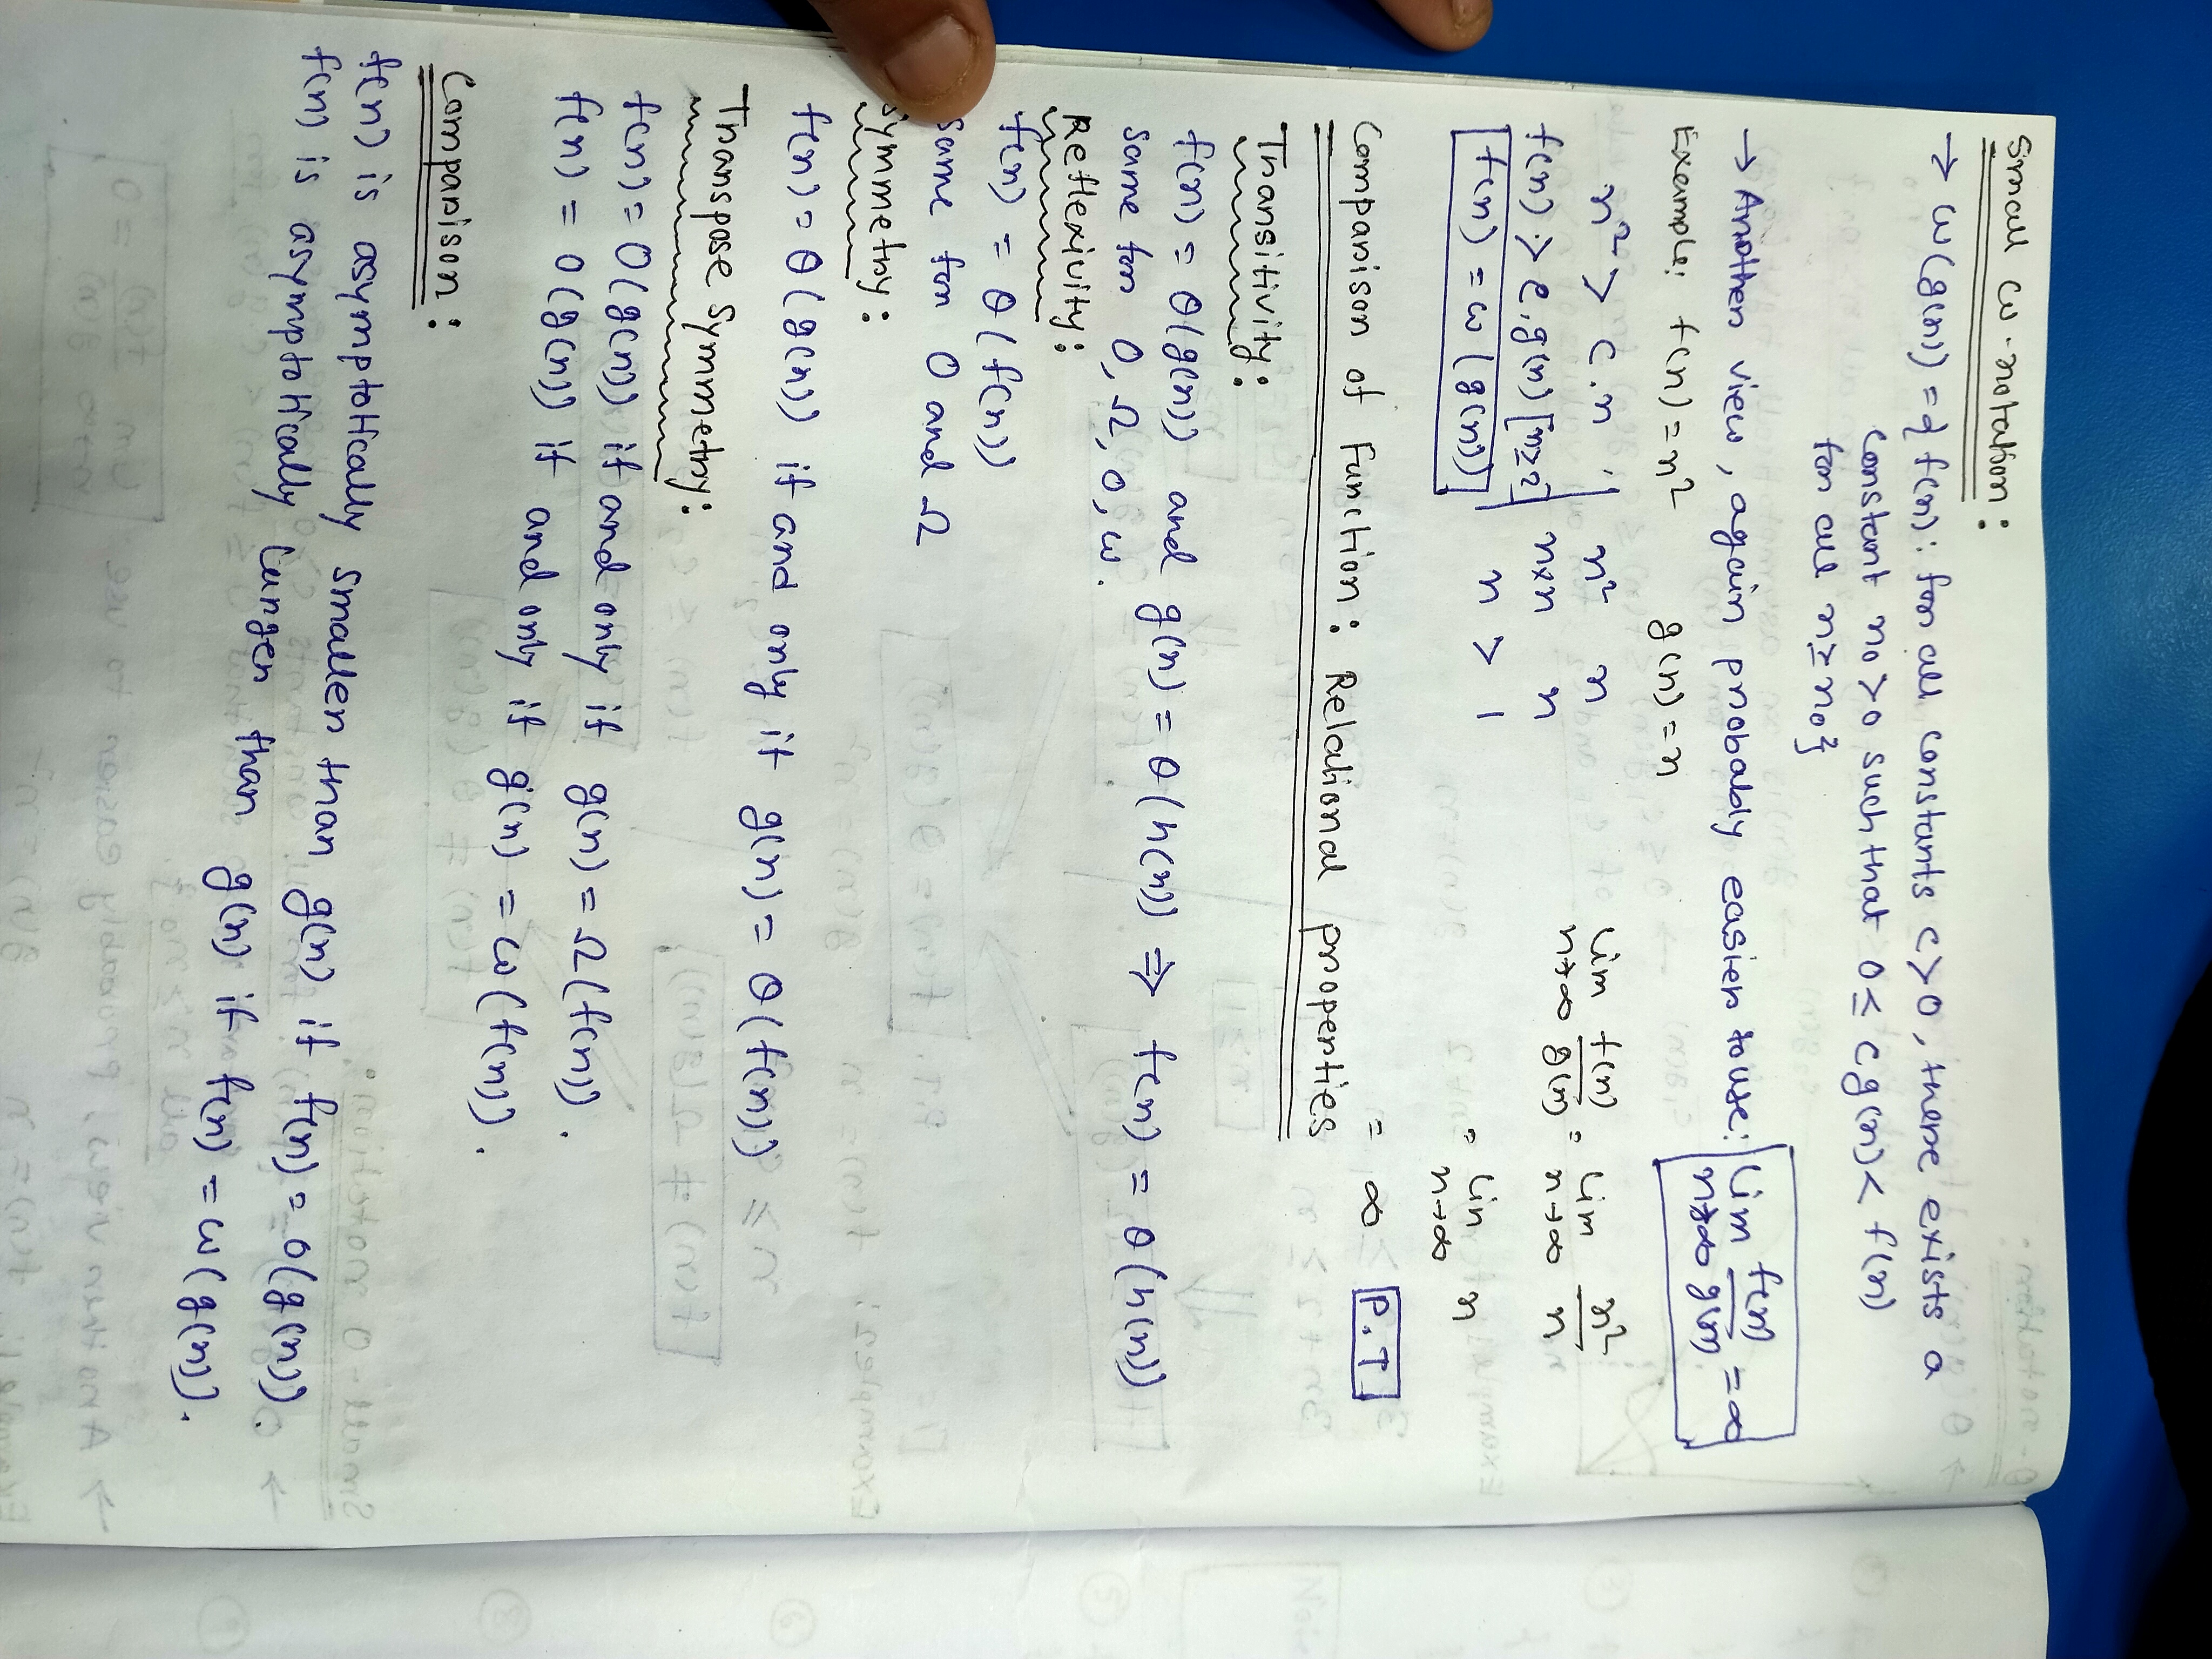 Small ω-notation:
→ ω(g(n)) = { f(n): for all constants c>0, there exists a
constant n₀>0 such that 0 ≤ cg(n) < f(n)
for all n ≥ n₀}
→ Another view, again probably easier to use: lim n→∞ f(n)/g(n) = ∞
Example: f(n) = n² g(n) = n
n² > c.n n² n lim n→∞ f(n)/g(n) = lim n→∞ n²/n
f(n) > c.g(n) [n≥2] n×n n
f(n) = ω(g(n)) n > 1 = lim n→∞ n
= ∞ P.T
Comparison of Function: Relational properties
Transitivity:
f(n) = θ(g(n)) and g(n) = θ(h(n)) ⇒ f(n) = θ(h(n))
same for O, Ω, o, ω.
Reflexivity:
f(n) = θ(f(n))
same for O and Ω
Symmetry:
f(n) = θ(g(n)) if and only if g(n) = θ(f(n))
Transpose Symmetry:
f(n) = O(g(n)) if and only if g(n) = Ω(f(n)).
f(n) = o(g(n)) if and only if g(n) = ω(f(n)).
Comparison:
f(n) is asymptotically smaller than g(n) if f(n) = o(g(n)).
f(n) is asymptotically larger than g(n) if f(n) = ω(g(n)).